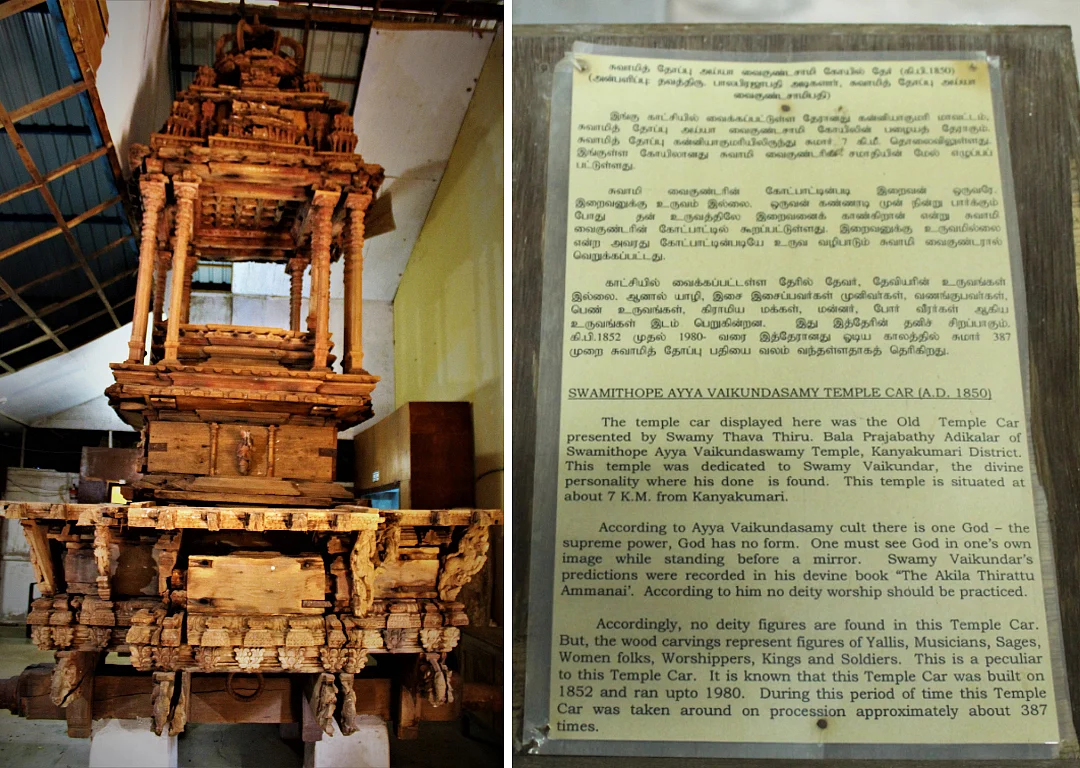 சுவாமித் தோப்பு அய்யா வைகுண்டசாமி கோயில் தேர் (கி.பி.1850)
(அன்பளிப்பு: தவத்திரு. பாலபிரஜாபதி அடிகளார், சுவாமித் தோப்பு அய்யா
வைகுண்டசாமிபதி)
இங்கு காட்சியில் வைக்கப்பட்டுள்ள தேரானது கன்னியாகுமரி மாவட்டம்,
சுவாமித் தோப்பு அய்யா வைகுண்டசாமி கோயிலின் பழையத் தேராகும்.
சுவாமித் தோப்பு கன்னியாகுமரியிலிருந்து சுமார் 7 கி.மீ. தொலைவிலுள்ளது.
இங்குள்ள கோயிலானது சுவாமி வைகுண்டரின் சமாதியின் மேல் எழுப்பப்
பட்டுள்ளது.
சுவாமி வைகுண்டரின் கோட்பாட்டின்படி இறைவன் ஒருவரே.
இறைவனுக்கு உருவம் இல்லை. ஒருவன் கண்ணாடி முன் நின்று பார்க்கும்
போது தன் உருவத்திலே இறைவனைக் காண்கிறான் என்று சுவாமி
வைகுண்டரின் கோட்பாட்டில் கூறப்பட்டுள்ளது. இறைவனுக்கு உருவமில்லை
என்ற அவரது கோட்பாட்டின்படியே உருவ வழிபாடும் சுவாமி வைகுண்டரால்
வெறுக்கப்பட்டது.
காட்சியில் வைக்கப்பட்டள்ள தேரில் தேவர், தேவியரின் உருவங்கள்
இல்லை. ஆனால் யாழி, இசை இசைப்பவர்கள் முனிவர்கள், வணங்குபவர்கள்,
பெண் உருவங்கள், கிராமிய மக்கள், மன்னர், போர் வீரர்கள் ஆகிய
உருவங்கள் இடம் பெறுகின்றன. இது இத்தேரின் தனிச் சிறப்பாகும்.
கி.பி.1852 முதல் 1980- வரை இத்தேரானது ஓடிய காலத்தில் சுமார் 387
முறை சுவாமித் தோப்பு பதியை வலம் வந்தள்ளதாகத் தெரிகிறது.
SWAMITHOPE AYYA VAIKUNDASAMY TEMPLE CAR (A.D. 1850)
The temple car displayed here was the Old Temple Car
presented by Swamy Thava Thiru. Bala Prajabathy Adikalar of
Swamithope Ayya Vaikundaswamy Temple, Kanyakumari District.
This temple was dedicated to Swamy Vaikundar, the divine
personality where his done is found. This temple is situated at
about 7 K.M. from Kanyakumari.
According to Ayya Vaikundasamy cult there is one God – the
supreme power, God has no form. One must see God in one's own
image while standing before a mirror. Swamy Vaikundar's
predictions were recorded in his devine book "The Akila Thirattu
Ammanai'. According to him no deity worship should be practiced.
Accordingly, no deity figures are found in this Temple Car.
But, the wood carvings represent figures of Yallis, Musicians, Sages,
Women folks, Worshippers, Kings and Soldiers. This is a peculiar
to this Temple Car. It is known that this Temple Car was built on
1852 and ran upto 1980. During this period of time this Temple
Car was taken around on procession approximately about 387
times.